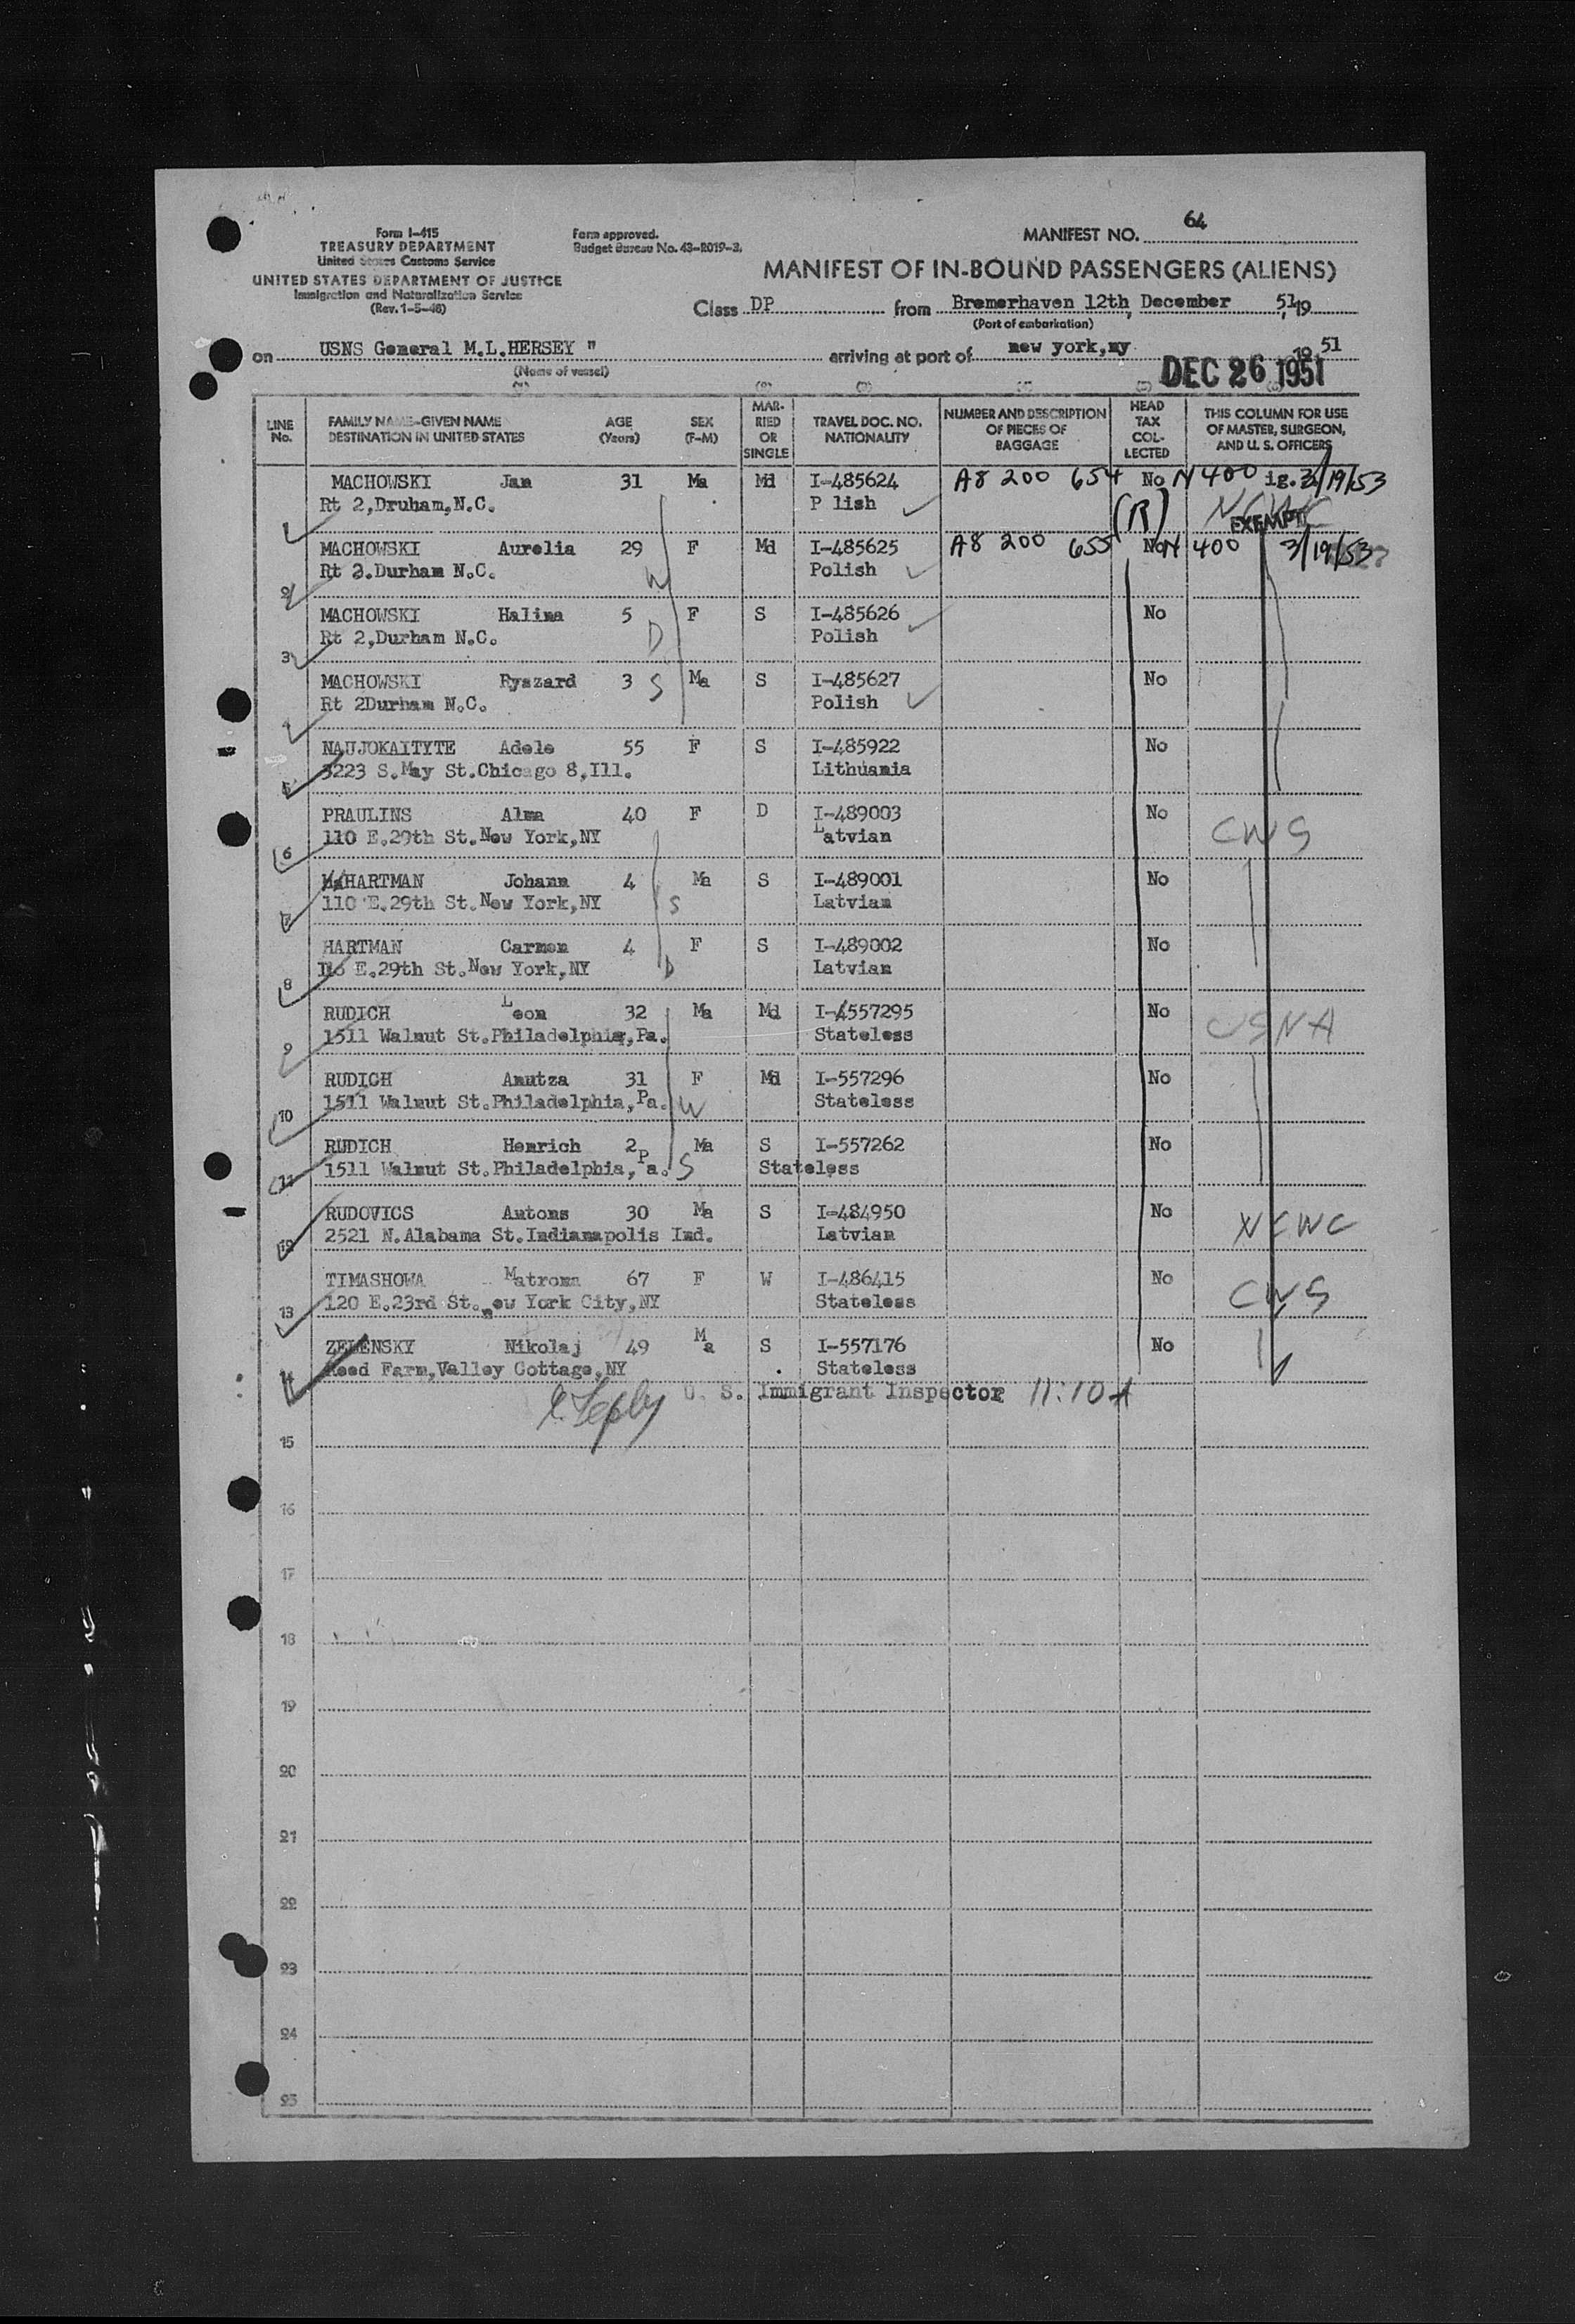 Form I-415
TREASURY DEPARTMENT
United States Customs Service
UNITED STATES DEPARTMENT OF JUSTICE
Immigration and Naturalization Service
(Rev. 1-5-48)
Form approved.
Budget Bureau No. 43-R019-3.
MANIFEST NO. 64
MANIFEST OF IN-BOUND PASSENGERS (ALIENS)
Class DP from Bremerhaven 12th, December 51, 19
(Port of embarkation)
on USNS General M.L.HERSEY " arriving at port of new york,ny 19 51
(Name of vessel)
DEC 26 1951
LINE No. FAMILY NAME-GIVEN NAME DESTINATION IN UNITED STATES AGE (Years) SEX (F-M) MAR-RIED OR SINGLE TRAVEL DOC. NO. NATIONALITY NUMBER AND DESCRIPTION OF PIECES OF BAGGAGE HEAD TAX COL-LECTED THIS COLUMN FOR USE OF MASTER, SURGEON, AND U. S. OFFICERS
MACHOWSKI Jan 31 Ma Md I-485624 A8 200 654 No N 400 ig. 3/19/53
1 Rt 2,Druham,N.C. P lish (R) NCWC EXEMPT
MACHOWSKI Aurelia 29 F Md I-485625 A8 200 655 No N 400 3/19/53
2 Rt 2.Durham N.C. W Polish
MACHOWSKI Halina 5 F S I-485626 No
3 Rt 2,Durham N.C. D Polish
MACHOWSKI Ryszard 3 S Ma S I-485627 No
4 Rt 2Durham N.C. Polish
NAUJOKAITYTE Adele 55 F S I-485922 No
5 3223 S.May St.Chicago 8,Ill. Lithuania
PRAULINS Alma 40 F D I-489003 No
6 110 E.29th St.New York,NY Latvian CWS
HARTMAN Johann 4 Ma S I-489001 No
7 110 E.29th St.New York,NY S Latvian
HARTMAN Carmen 4 F S I-489002 No
8 110 E.29th St.New York,NY D Latvian
RUDICH Leon 32 Ma Md I-557295 No
9 1511 Walnut St.Philadelphia,Pa. Stateless USNA
RUDICH Anutza 31 F Md I-557296 No
10 1511 Walnut St.Philadelphia,Pa. W Stateless
RUDICH Henrich 2 Ma S I-557262 No
11 1511 Walnut St.Philadelphia,Pa. S Stateless
RUDOVICS Antons 30 Ma S I-484950 No
12 2521 N.Alabama St.Indianapolis Ind. Latvian NCWC
TIMASHOWA Matrona 67 F W I-486415 No
13 120 E.23rd St.New York City,NY Stateless CWS
ZELENSKY Nikolaj 49 Ma S I-557176 No
14 Reed Farm,Valley Cottage,NY Stateless
U. S. Immigrant Inspector 11:10 A
15
16
17
18
19
20
21
22
23
24
25